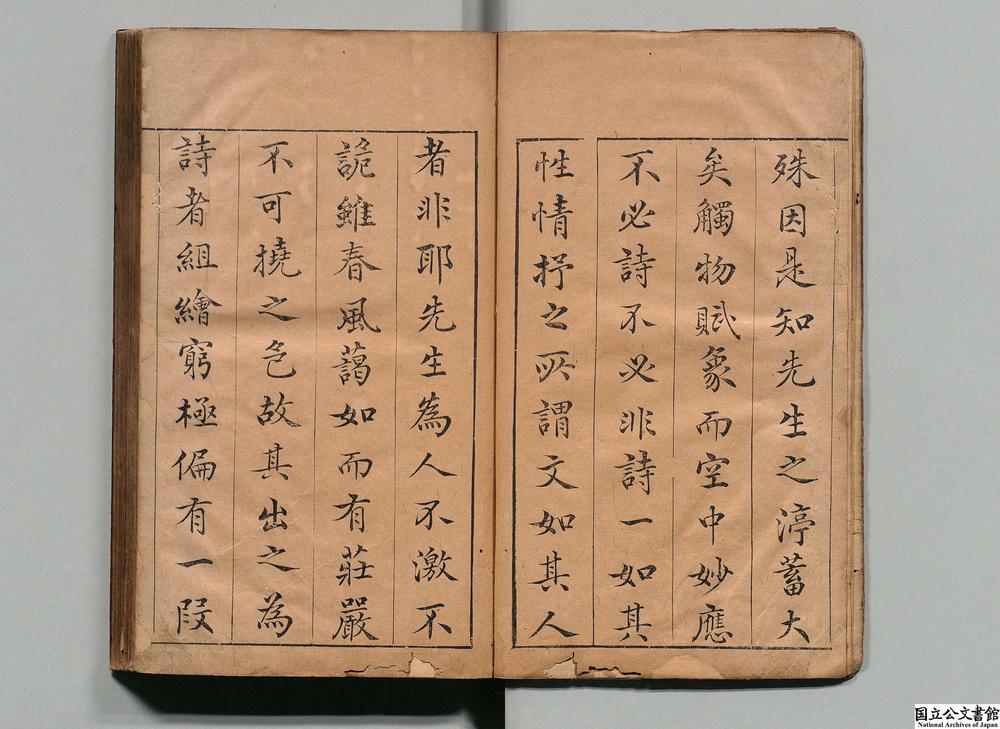 殊因是知先生之渟蓄大
矣觸物賦象而空中妙應
不必詩不必非詩一如其
性情抒之所謂文如其人
者非耶先生為人不激不
詭雖春風藹如而有莊嚴
不可撓之色故其出之為
詩者組繪窮極偏有一段
国立公文書館
National Archives of Japan